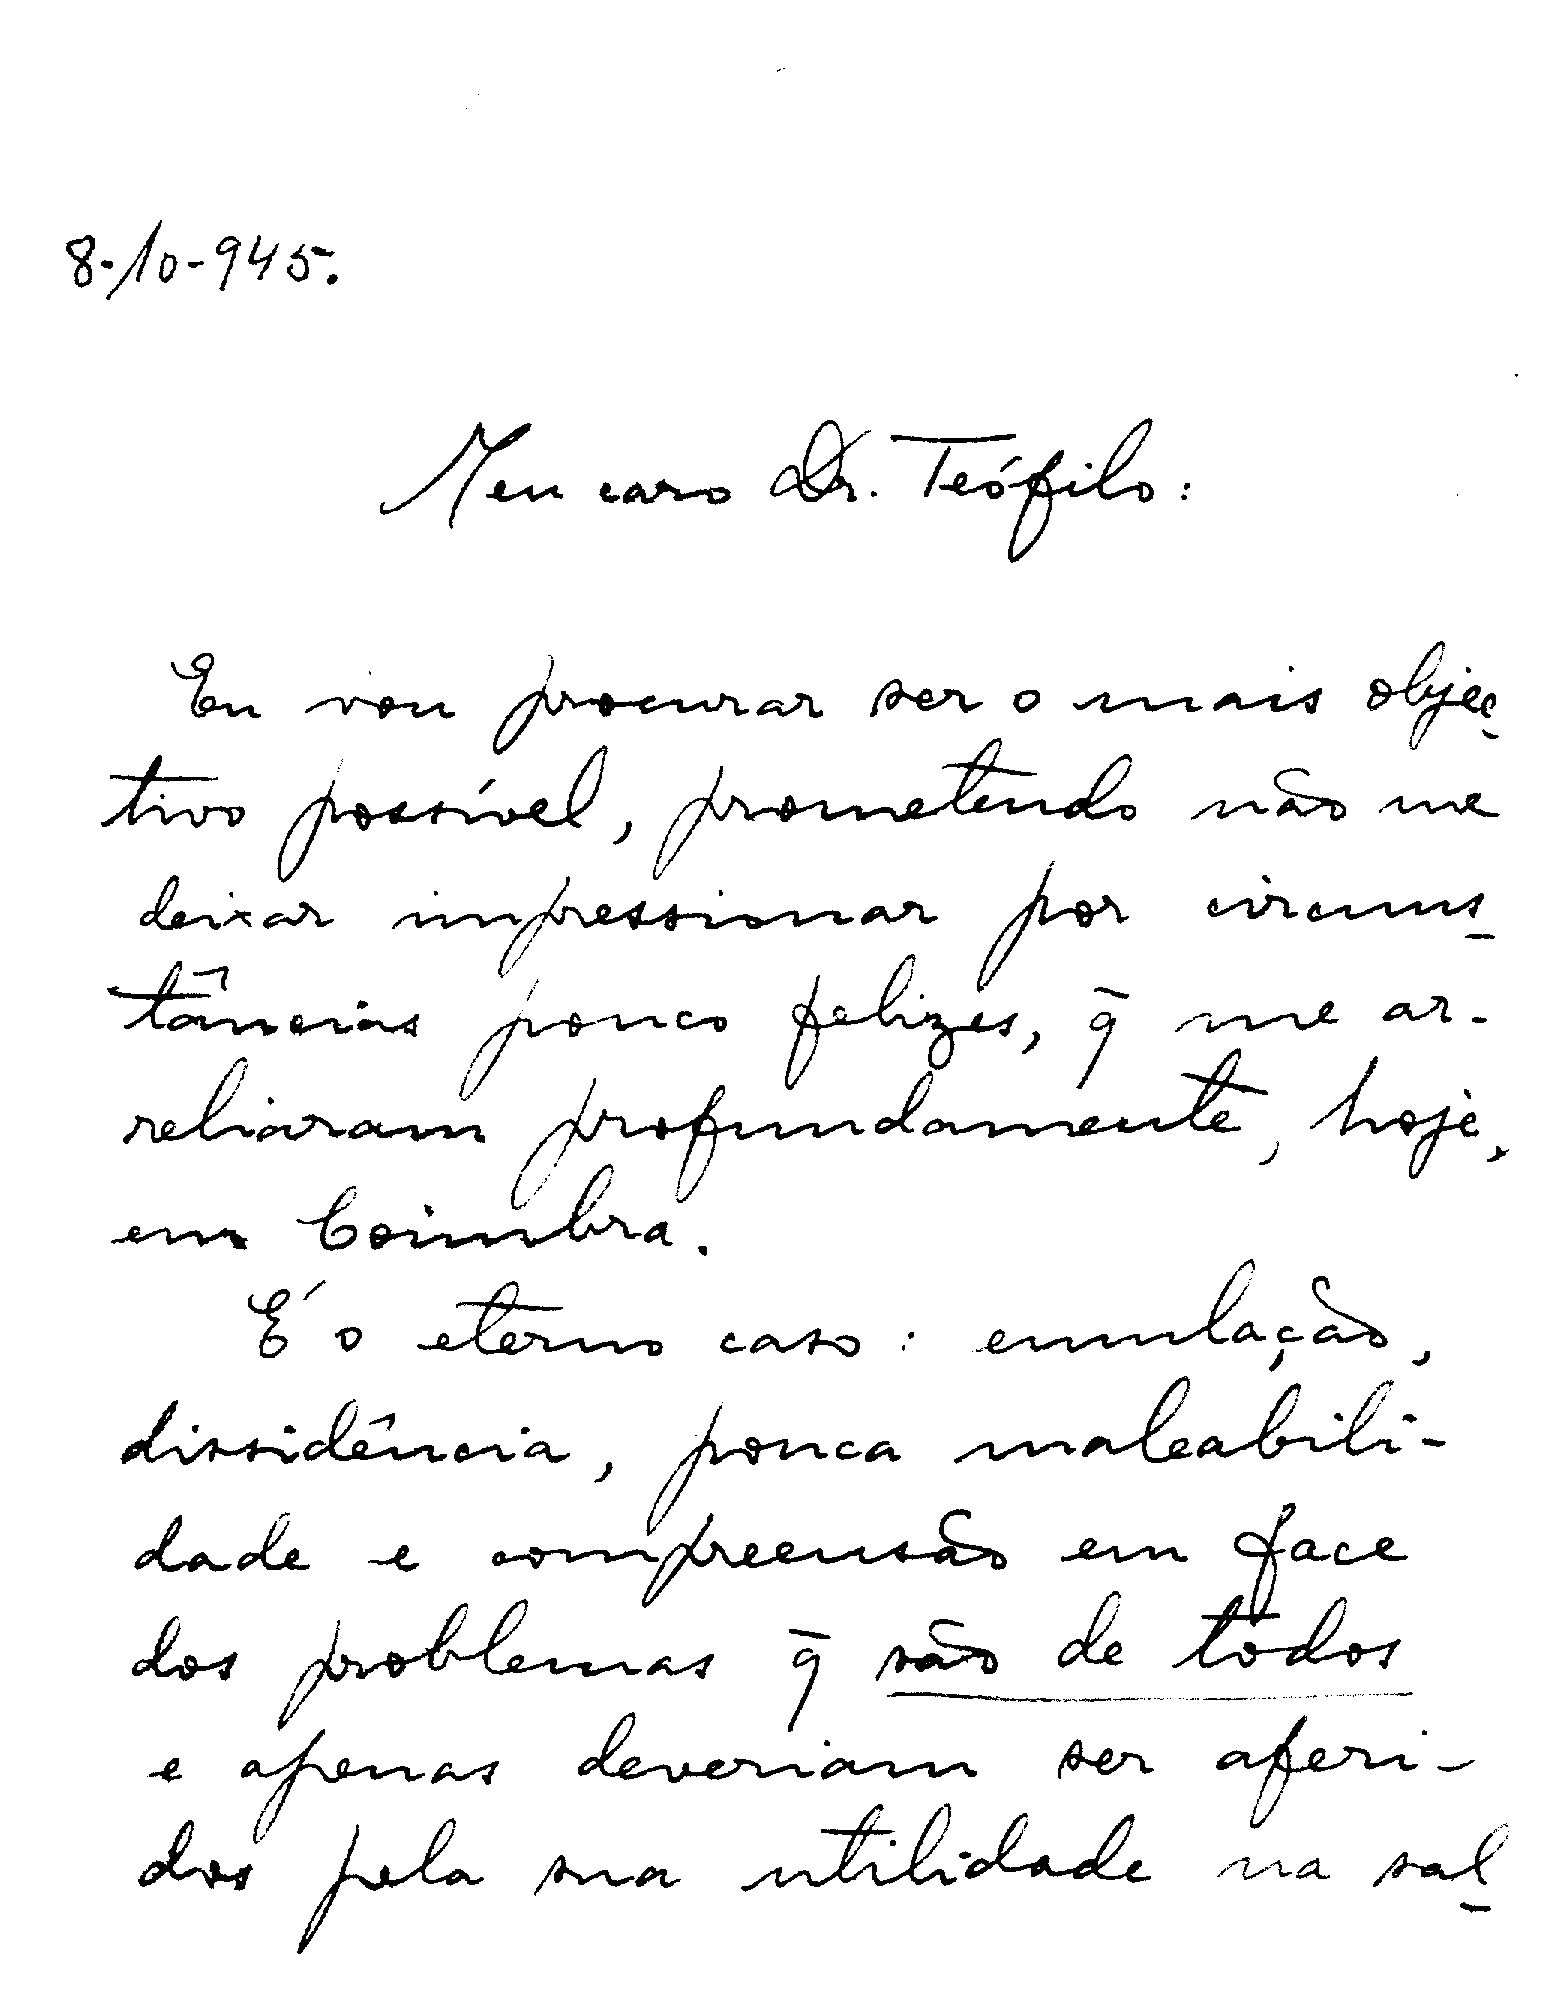 8-10-945.
Meu caro Dr. Teófilo:
Eu vou procurar ser o mais objec-
tivo possível, prometendo não me
deixar impressionar por circuns-
tâncias pouco felizes, q̄ me ar-
reliaram profundamente, hoje,
em Coimbra.
É o eterno caso: emulação,
dissidência, pouca maleabili-
dade e compreensão em face
dos problemas q̄ são de todos
e apenas deveriam ser aferi-
dos pela sua utilidade na sal-